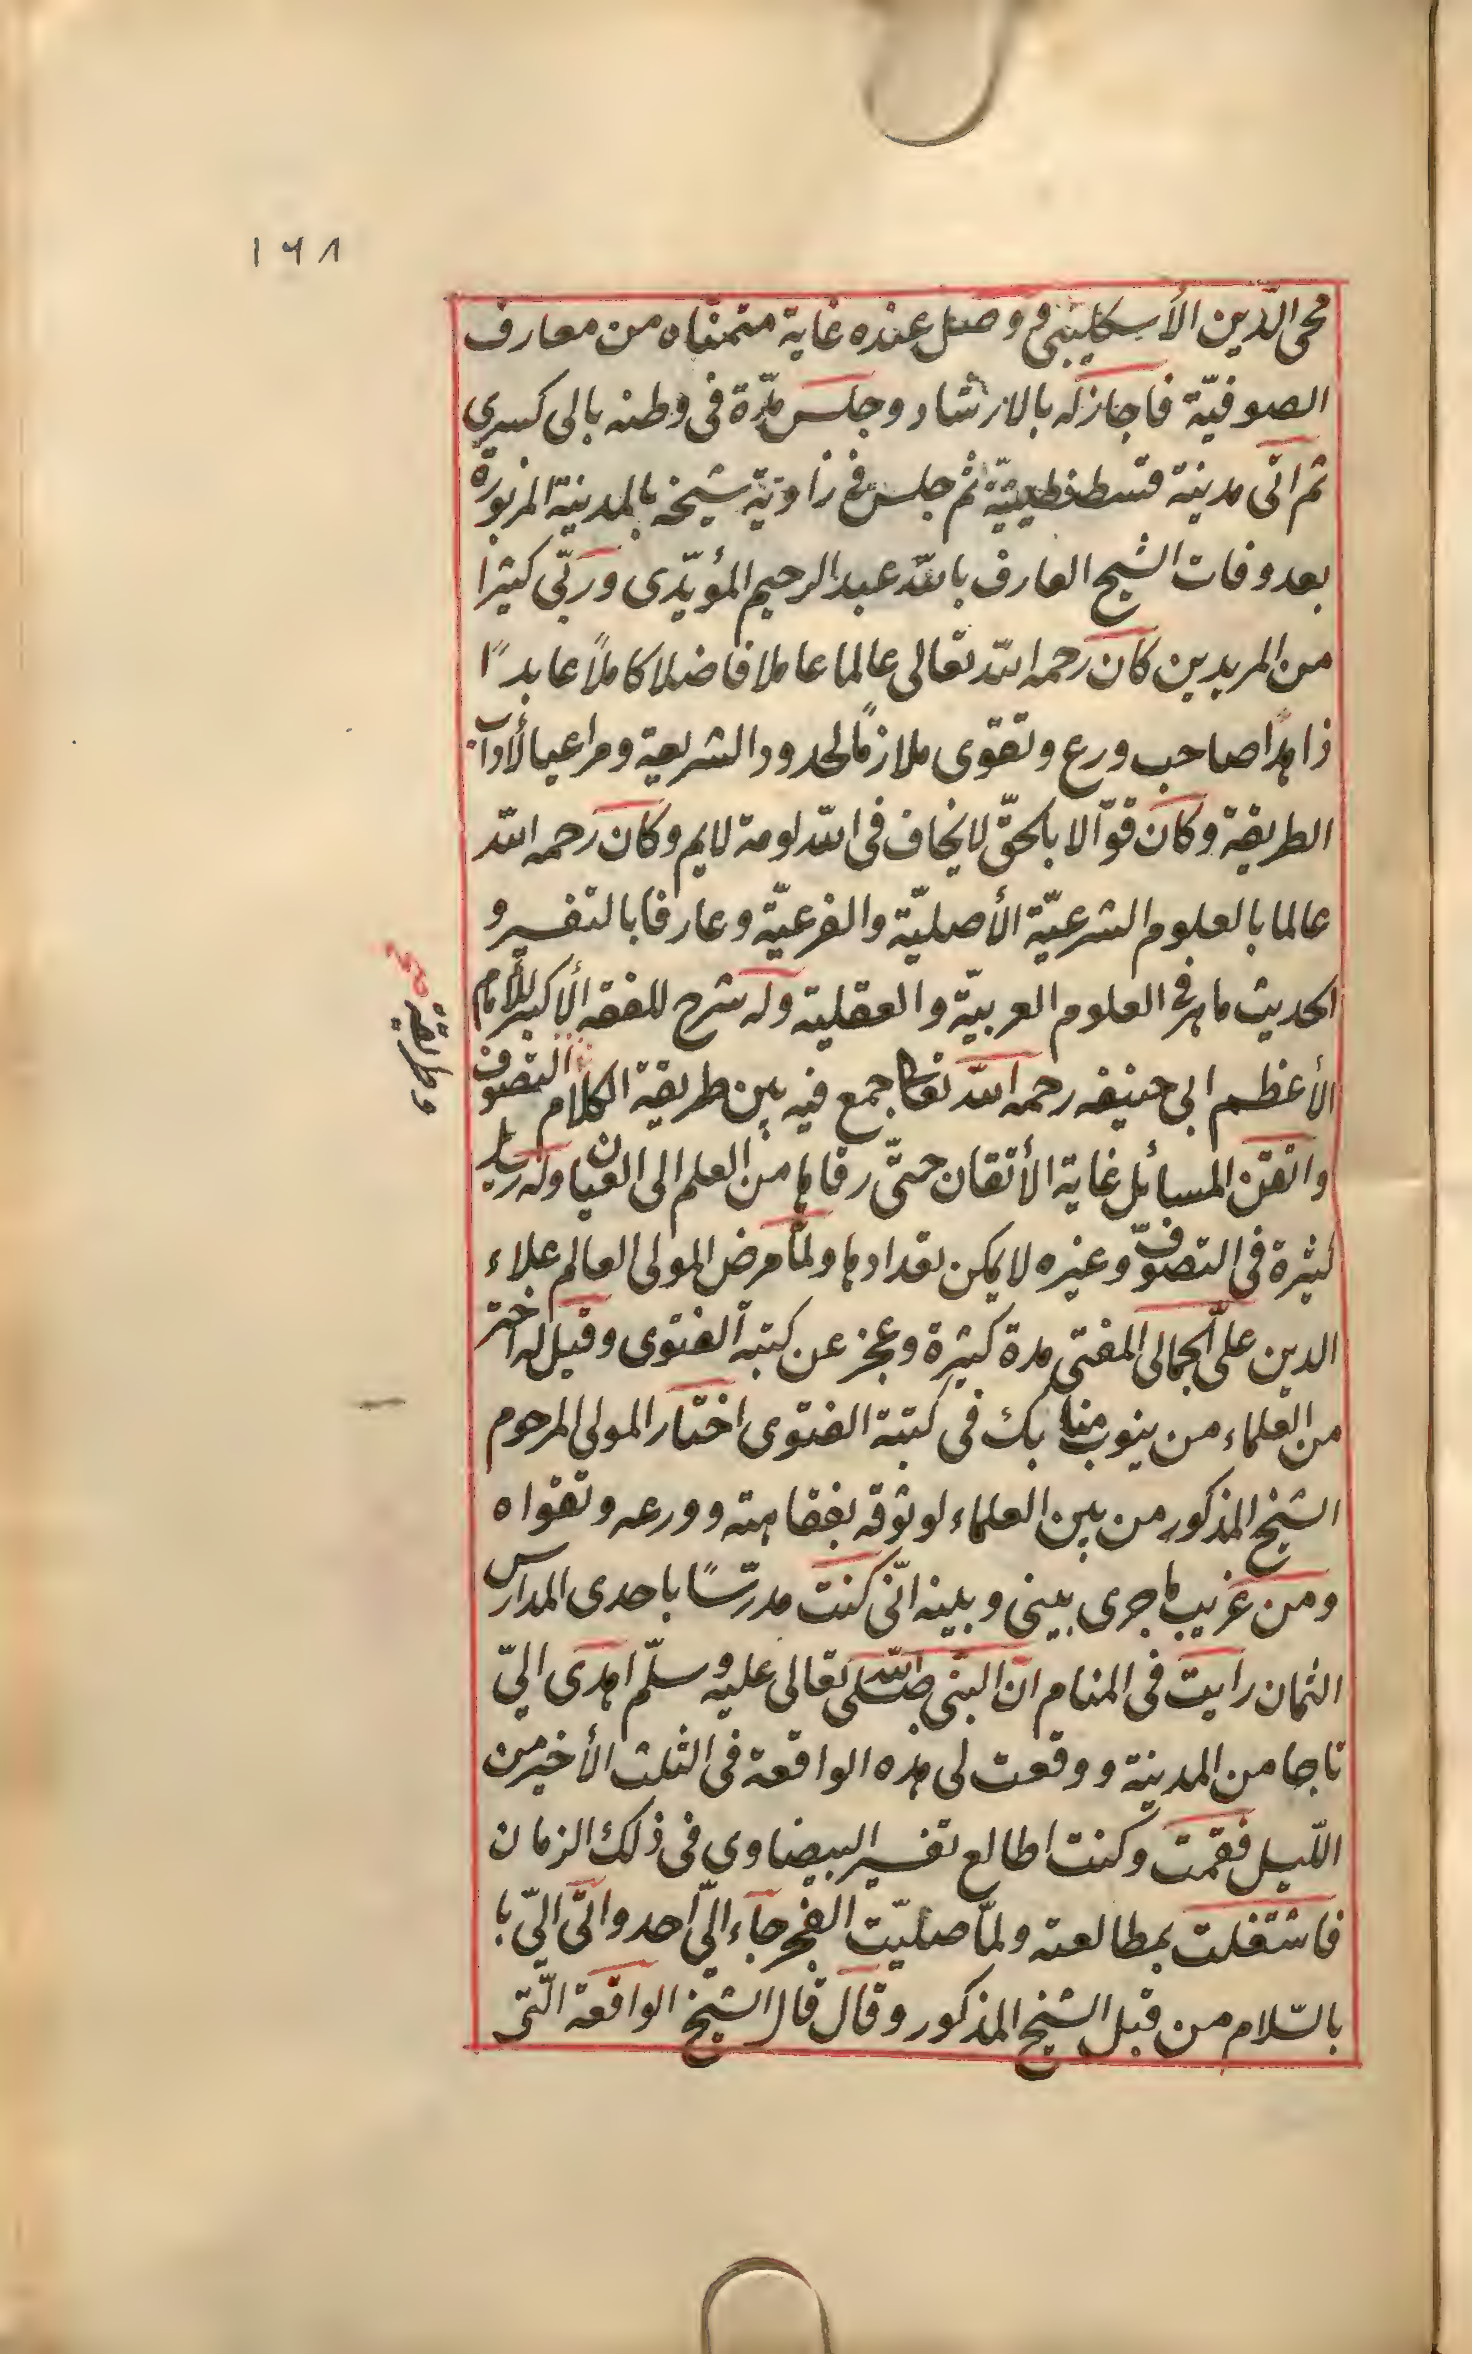 ١٦٨
محى الدّين الأسكليبى و وصل عنده غاية متمنّاه من معارف
الصوفيّة فاجازله بالارشاد وجلس مدّة فى وطنه بالى كسيري
ثم اتى مدينة قسطنطينيّة ثم جلس فى زاوية شيخه بالمدينة المزبورة
بعد وفات الشيخ العارف بالله عبد الرحيم المؤيّدى وربّى كثيرا
من المريدين كان رحمه الله تعالى عالما عاملا فاضلا كاملاً عابدًا
زاهدًا صاحب ورع وتقوى ملازمًا لحدود الشريعة ومراعيا لأداب
الطريقة وكان قوّالا بالحقّ لا يخاف فى الله لومة لايم وكان رحمه الله
عالما بالعلوم الشرعيّة الأصليّة والفرعيّة وعارفا بالتفسير و
الحديث ماهر فى العلوم العربيّة والعقلية وله شرح للفقه الأكبر للأمام
الأعظم ابى حنيفه رحمه الله تعالى جمع فيه بين طريقة الكلام التصوف
وطريقة
صح
واتقن المسائل غاية الأتقان حتّى رقاها من العلم الى العيان وله رسايل
كثيرة فى التصوّف وغيره لا يمكن تعدادها ولمّا مرض المولى العالم علاء
الدين علىّ الجمالى المفتى مدة كثيرة وعجز عن كتبة الفتوى وقيل له اختر
من العلماء من ينوب منابك فى كتبة الفتوى اختار المولى المرحوم
الشيخ المذكور من بين العلماء لوثوقه بفقاهته وورعه وتقواه
ومن غريب ما جرى بينى وبينه انّى كنت مدرّسًا باحدى المدارس
الثمان رايت فى المنام ان النبّى صلّى الله تعالى عليه وسلّم اهدى الىّ
تاجا من المدينة ووقعت لى هذه الواقعة فى الثلث الأخير من
اللّيل فقمت وكنت اطالع تفسير البيضاوى فى ذلك الزمان
فاشتغلت بمطالعته ولمّا صليّت الفجر جاء الىّ احد واتى الىّ با
بالسّلام من قبل الشيخ المذكور وقال قال الشيخ الواقعة الّتى